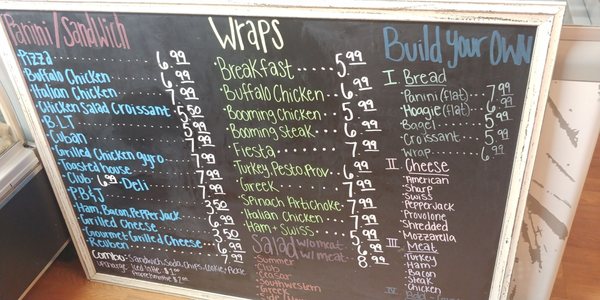 Panini/Sandwich
Pizza 6.99
Buffalo Chicken 6.99
Italian Chicken 7.99
Chicken Salad Croissant 5.50
B.L.T 5.99
Cuban 7.99
Grilled Chicken gyro 7.99
Roasted house 7.99
Club 6.99 - Deli 7.99
P.B & J 3.50
Ham, Bacon, Pepper Jack
Grilled Cheese
Gourmet Grilled Cheese
Reuben 7.99
Combo: Sandwich, Soda, Chips, Cookie, Pickle
upcharge
Wraps
Breakfast 5.99
Buffalo Chicken 6.99
Booming Chicken 5.99
Booming Steak 6.99
Fiesta 7.99
Turkey, Pesto, Prov 6.99
Greek 7.99
Spinach Artichoke 7.99
Italian Chicken 7.99
Ham + Swiss
Salad w/o meat
w/ meat 8.99
Summer
Club
Ceasar
Southwestern
Greek
Side
Build Your Own
I Bread
Panini (flat) 7.99
Hoagie (flat) 6.99
Bagel 5.99
Croissant 5.99
Wrap 6.99
II Cheese
American
Sharp
Swiss
Pepper Jack
Provolone
Shredded
Mozzarella
III Meat
Turkey
Ham
Bacon
Steak
Chicken
IV